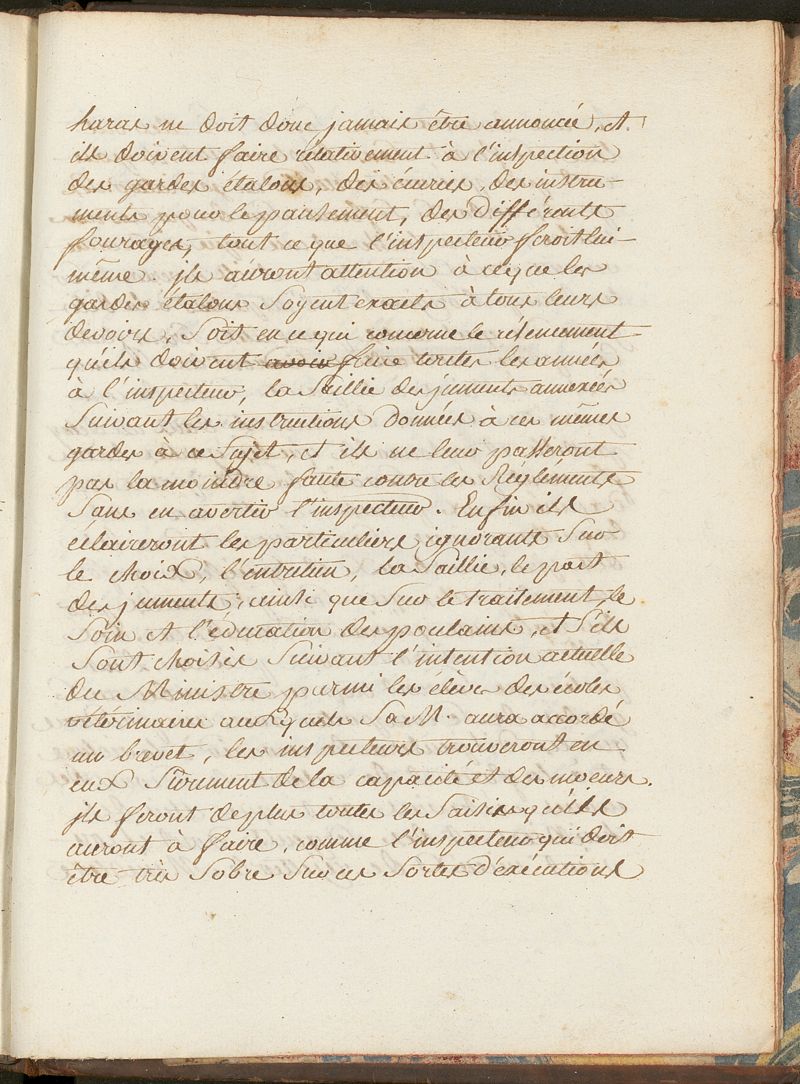 haras ne doit donc jamais être annoncée, et
ils doivent faire rélativement à l'inspection
des gardes étalons, des écuries, des instru-
ments pour le pansement, des différents
fourages, tout ce que l'inspecteur feroit lui-
même. ils auront attention à ce que les
gardes étalons soyent exacts à tous leurs
devoirs, soit en ce qui concerne le résencement
qu'ils doivent avoir faire toutes les années
à l'inspecteur, la saillie des juments annexées
suivant les instructions données à ces mêmes
gardes à ce sujet, et ils ne leur passeront
pas la moindre faute contre les Réglements
sans en avertir l'inspecteur. Enfin ils
éclaireront les particuliers ignorants sur
le choix, l'entretien, la saillie, le part
des juments, ainsi que sur le traitement, le
soin et l'éducation des poulains, et s'ils
sont choisis suivant l'intention actuelle
du Ministre parmi les élèves des écoles
vétérinaires auxquels Sa M. aura accordé
un brevet, les inspecteurs trouveront en
eux surement de la capacité et des moeurs.
ils feront de plus toutes les saisies qu'ils
auront à faire, comme l'inspecteur qui doit
être très sobre sur ces sortes d'exécutions